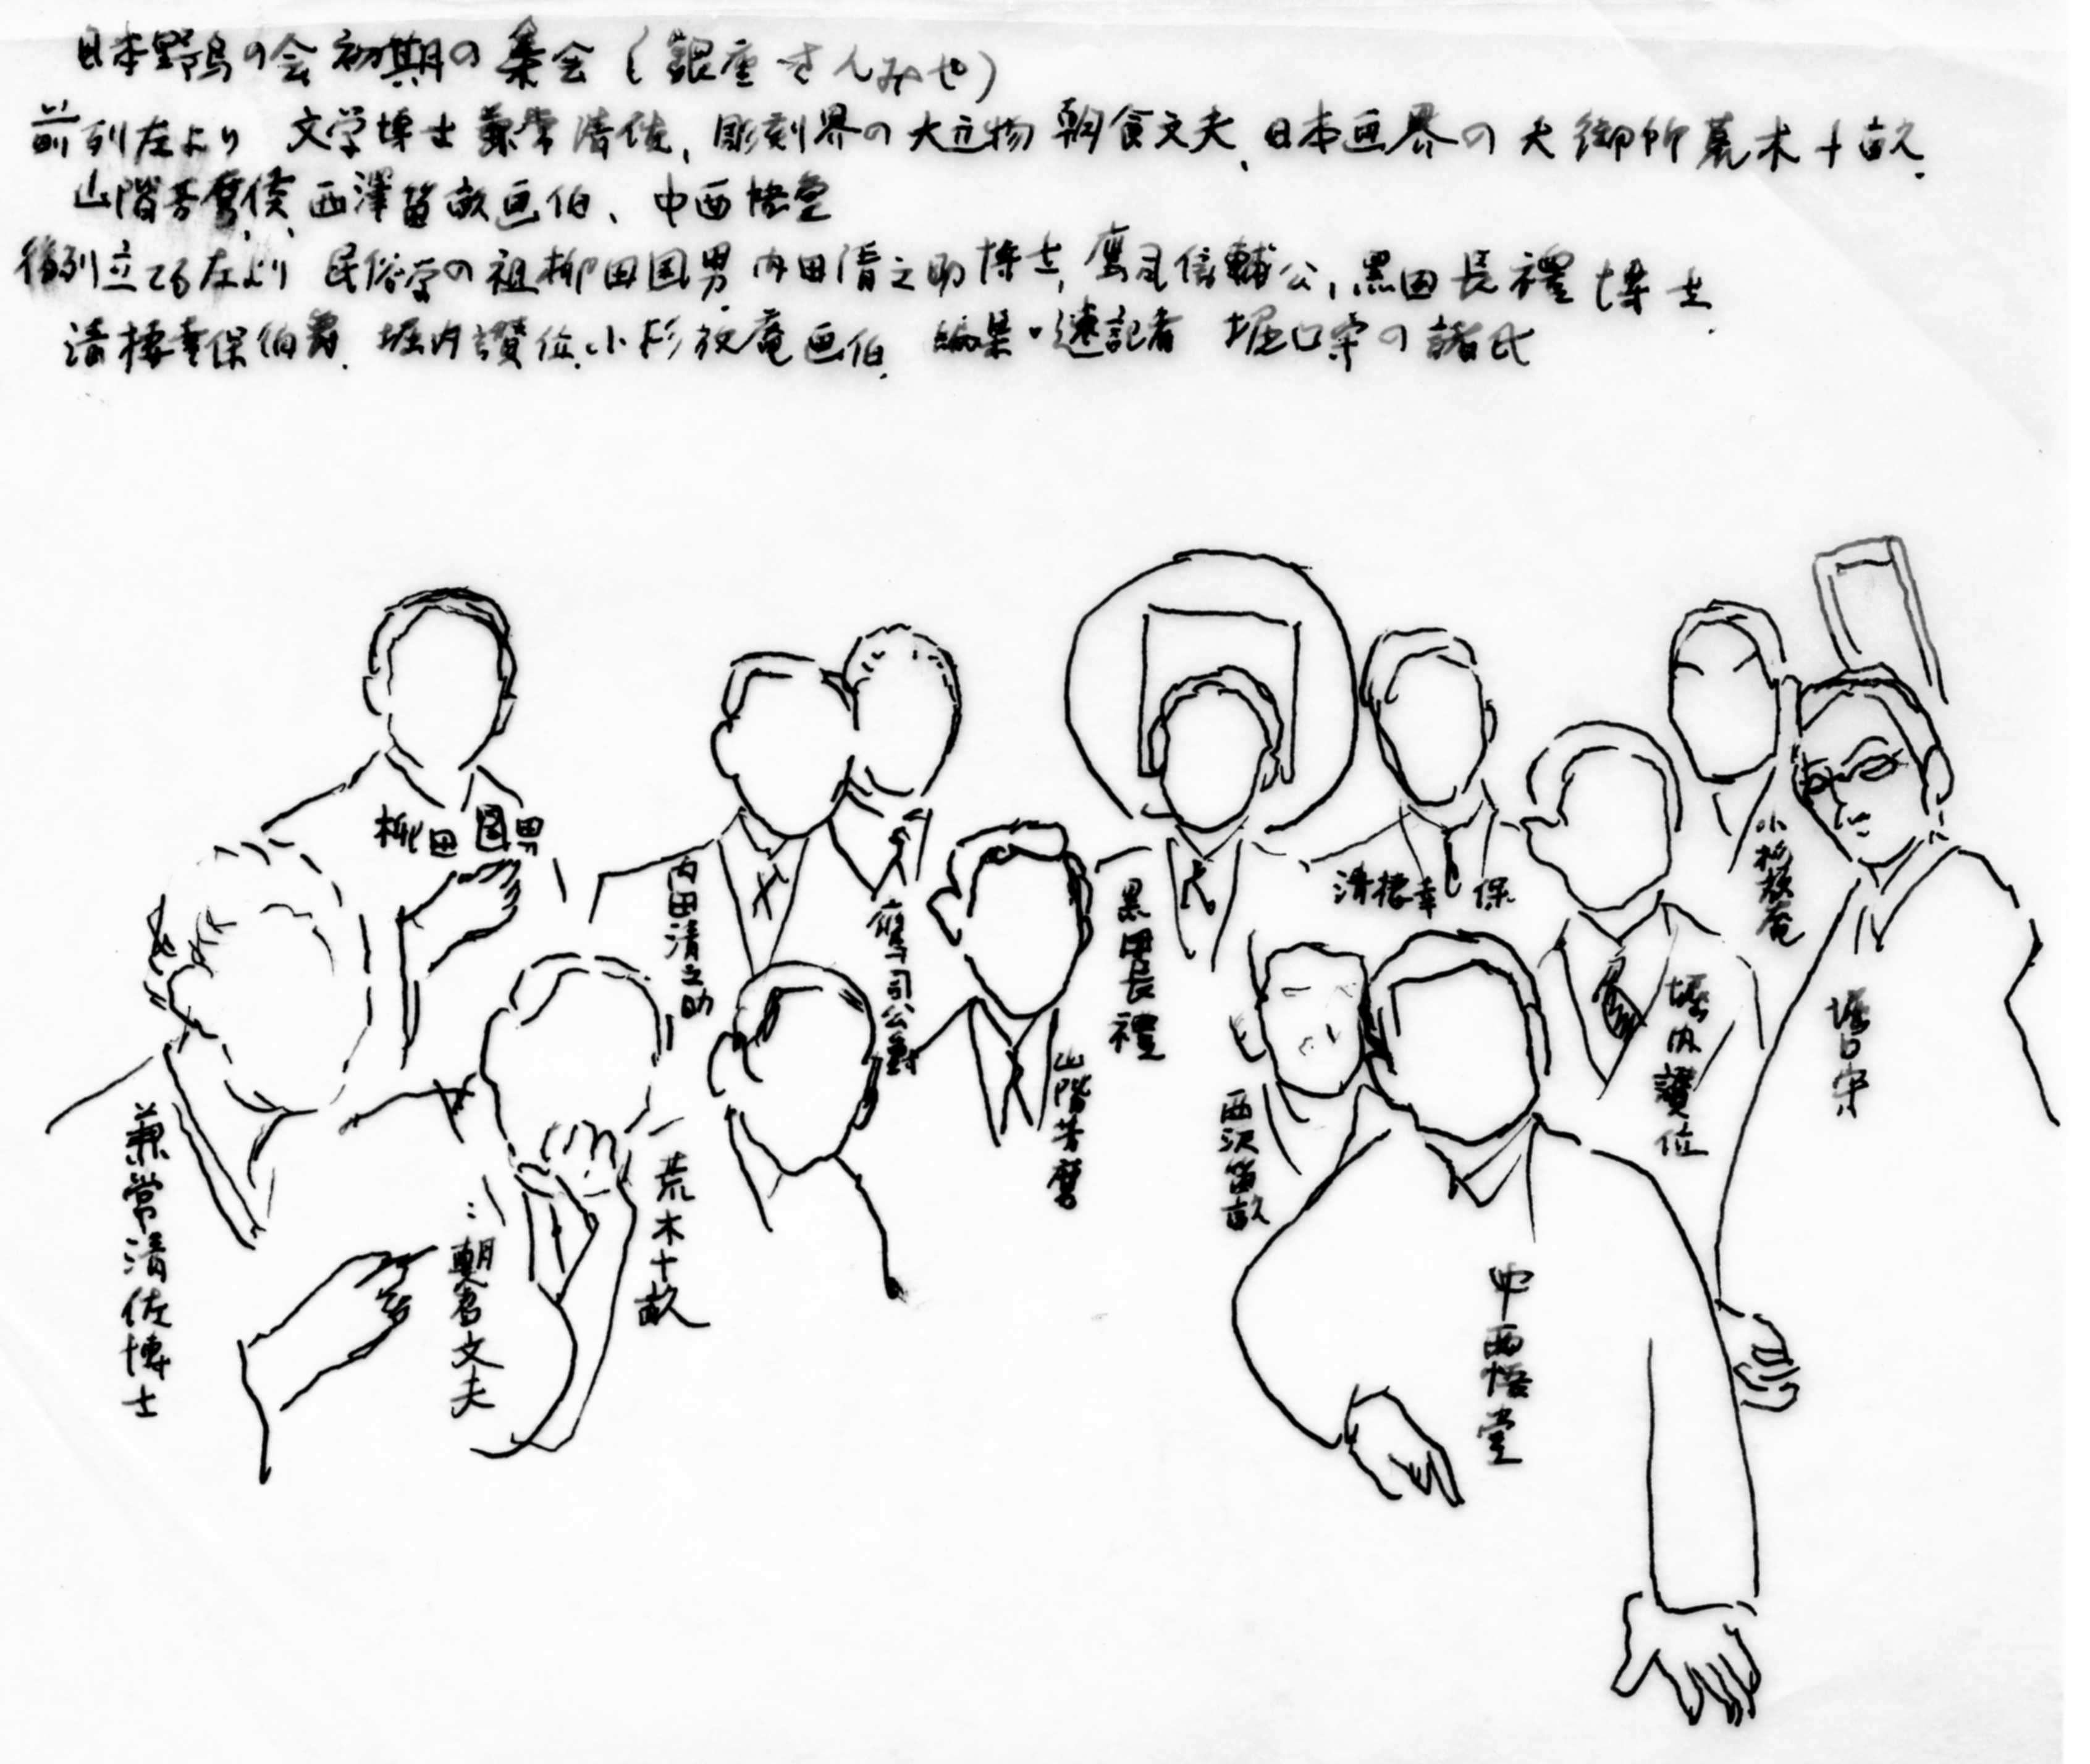 日本野鳥の会初期の集会(銀座さんみせ)
前列左より 文学博士兼常清佐、彫刻界の大立物朝倉文夫、日本画界の大御所荒木十畝、
山階芳麿侯、西澤笛畝画伯、中西悟堂
後列立てる左より 民俗学の祖柳田国男、内田清之助博士、鷹司信輔公、黒田長禮博士、
清棲幸保伯爵、堀内讃位、小杉放庵画伯、編集・速記者 堀口宗の諸氏
柳田国男
内田清之助
鷹司公爵
黒田長禮
清棲幸保
小杉放庵
堀内讃位
堀口宗
兼常清佐博士
朝倉文夫
荒木十畝
山階芳麿
西沢笛畝
中西悟堂